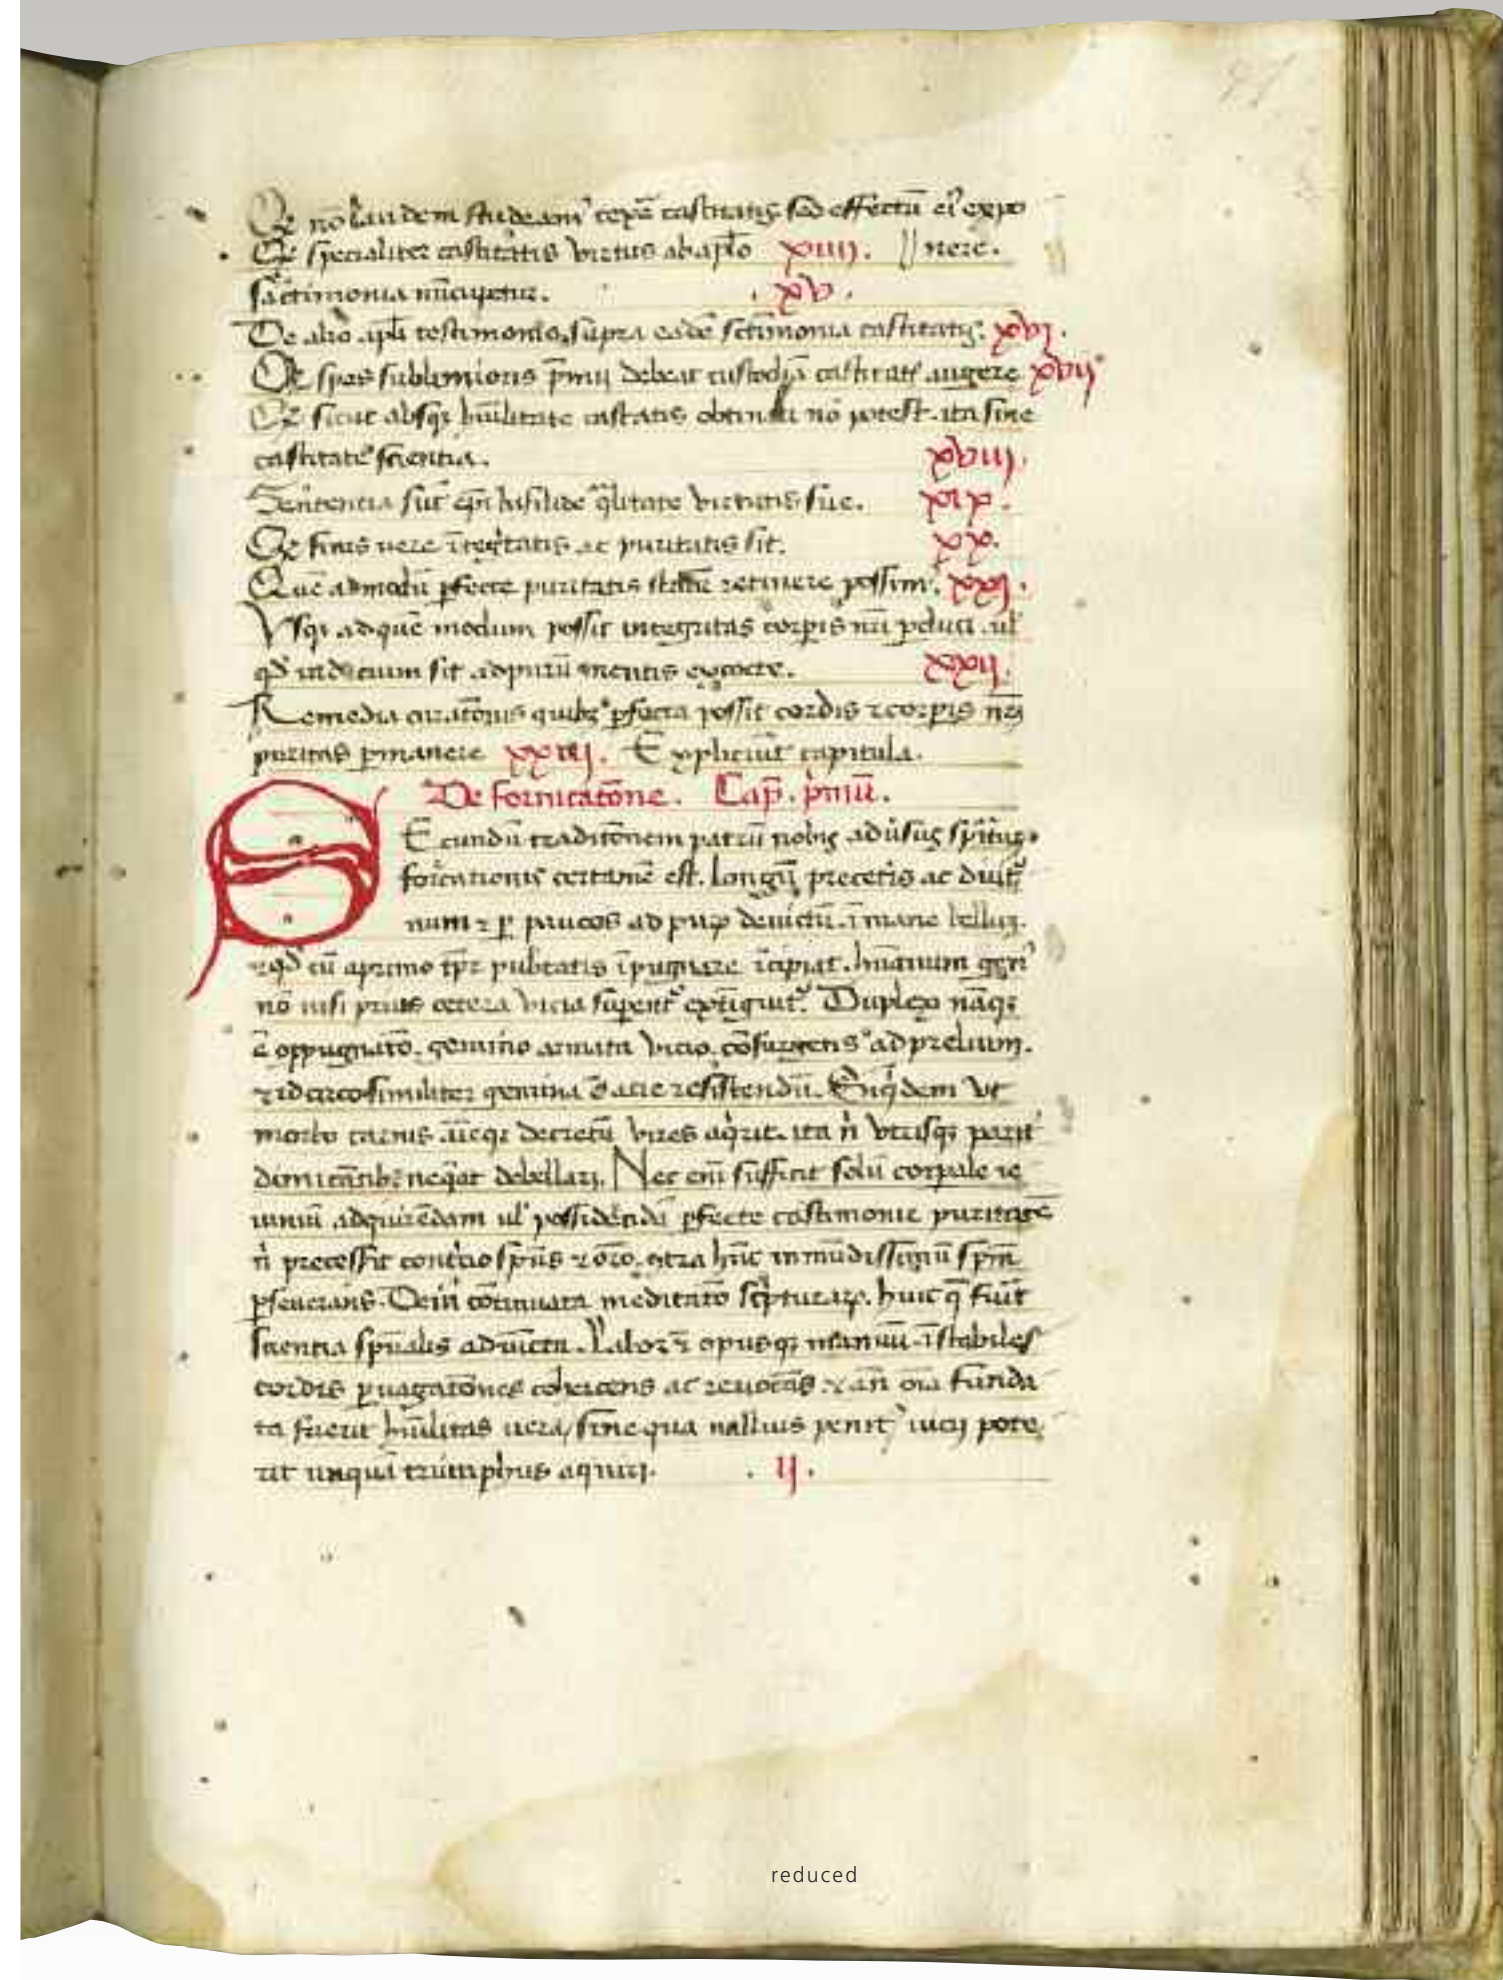 Qͥ nō laudem studeamꝰ cepᷓe castitatis sed effectū eiꝰ expo
Qͥ specialiter castitatis virtus ab apl̄o xiiii. // nere.
sāctimonia nūcupetur. . xv .
De alio apl̄i testimonio, supra eadē sctīmonia castitatis. xvi.
Qͥ spes sublimioris p̄mij debeat custodiā castitatꝭ augere xvii
Qͥ sicut absqꝫ hūilitate castatis obtineri nō potest. ita sine
castitatꝭ scientia. xviii.
Sententia sūt ep̄i basilii de q̄litate virtutis sue. xix.
Qͥ finis uere ītegͥtatis ac puritatis sit. xx.
Quē admodū ꝑfecte puritatis statū retinere possimꝰ. xxi.
Vsqꝫ ad quē modum possit integritas corꝑis nr̄i ꝑduci. ul̓
qđ indicium sit ad purū mentis excocte. xxii.
Remedia curatōnis quibꝫ ꝑfecta possit cordis ⁊ corꝑis nr̄i
puritas ꝑmanere xxiii. Expliciūt capitula.
De fornicatōne. Cap̄. pͥmū.
SEcundū traditōnem patrū nobis aduͥsus spͥitus
forͥcationis certamē est. longū p̄ ceteris ac diutꝰ
num ⁊ ꝑ paucos ad puꝝ deuictū. īmane bellum.
⁊ qđ cū a primo tp̄r pubtatis īpugnare īcipiat. hūanum genꝰ
nō nisi prius cetera vicia suꝑentᷣ extīguitᷣ. Duplex nāqꝫ
ē oppugnatō. gemino armata vicio. cōsurgens ad prelium.
⁊ idcirco similiter gemina ē acie resistendū. Siqͥdem vt
morbo carnis aīeqꝫ decretū vires aqͥrit. ita nͥ vtrisqꝫ parit̓
dimicātibꝫ neq̄at debellari. Nec eni sufficit solū corꝑale ie
iuniū ad quirēdam ul̓ possidēdā ꝑfecte castimonie puritatē
nͥ precesserit contͥcio sp̄us ⁊ orō. ꝯtra hūc inmūdissimū sp̄m
ꝑseuerans. Dein cōtinuata meditatō scͥpturaꝝ. huic q̄ fuīt
scientia sp̄ualis adiūcta. Labor ⁊ opusqꝫ manuū. īstabiles
cordis ꝑuagatōnes cohercens ac reuocās. ⁊ an̄ oīa funda
ta fuerit hūilitas uera, sine qua nullius penitꝰ vicij pote
rit unquā triumphus aquiri. . ij .
reduced